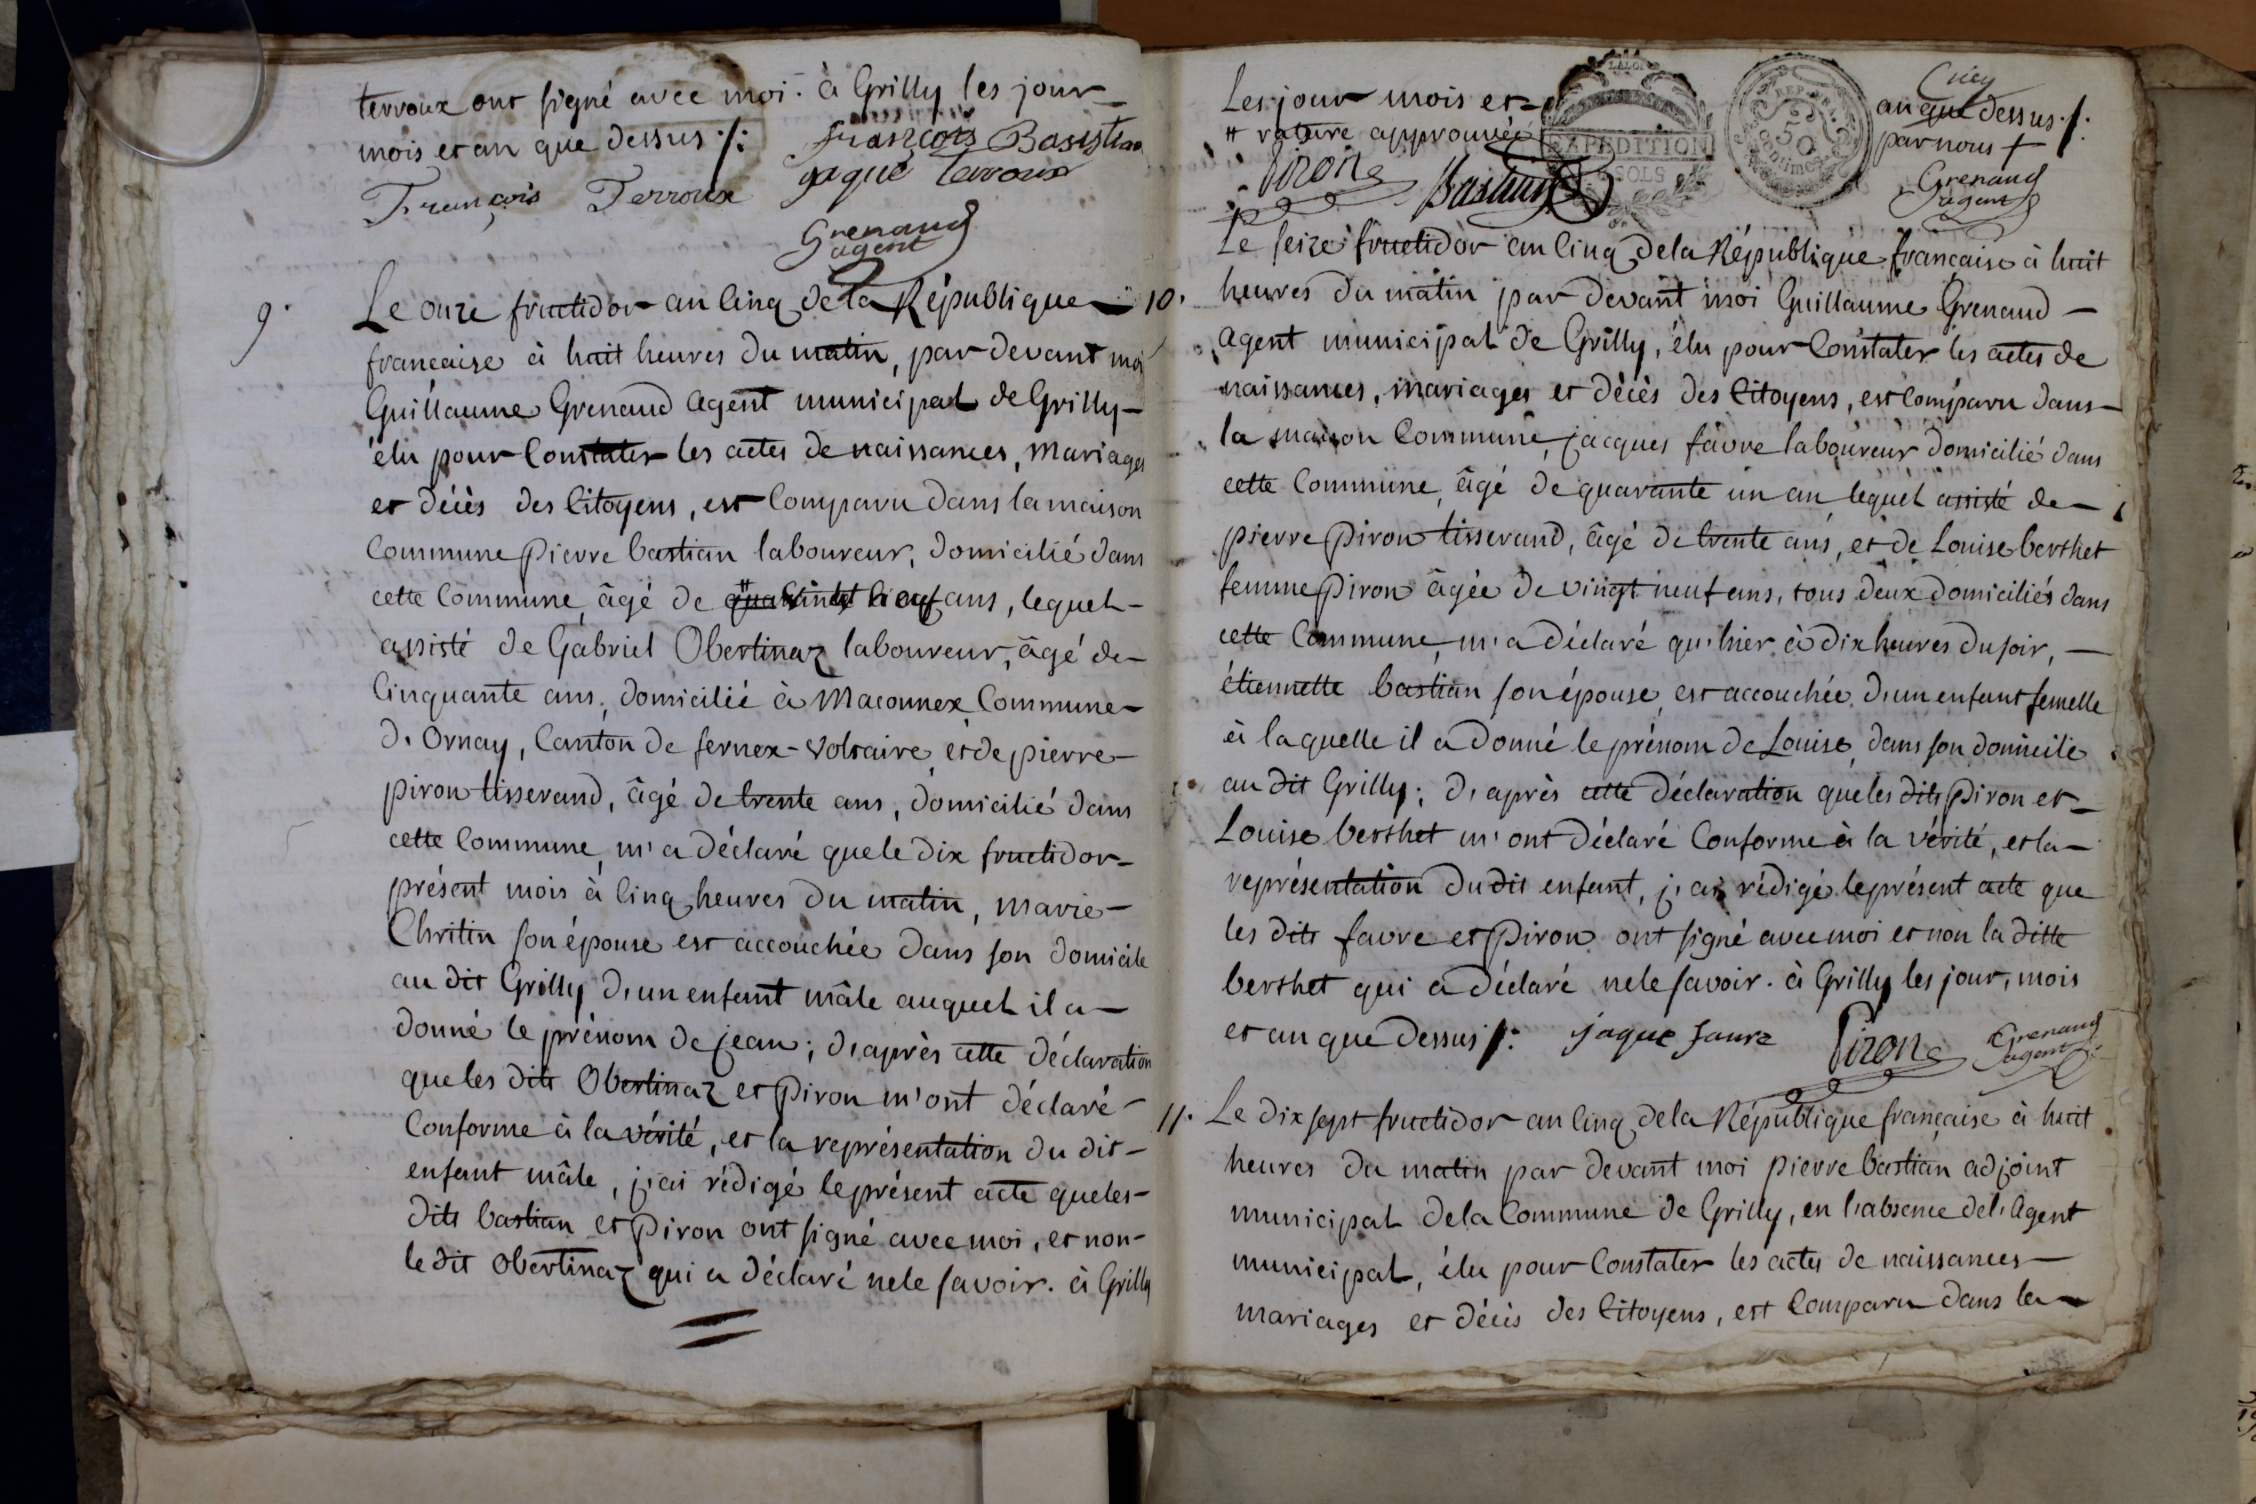 terroux ont signé avec moi. à Grilly les jour
mois et an que dessus ./.
françois Basstian
François Terroux
jaque terroux
Grenaud
agent
9.
Le onze fructidor an cinq de la République
francaise à huit heures du matin, par devant moi
Guillaume Grenaud agent municipal de Grilly
élu pour Constater les actes de naissances, mariages
et décès des Citoyens, est Comparu dans la maison
Commune pierre bastian laboureur, domicilié dans
cette Commune, âgé de ans, lequel
assisté de Gabriel Obertinaz laboureur, âgé de
Cinquante ans, domicilié à Maconnex Commune
d'Ornay, Canton de fernex-Voltaire, et de pierre
piron tisserand, âgé de trente ans, domicilié dans
cette Commune, m'a déclaré que le dix fructidor
présent mois à cinq heures du matin, marie
Chritin son épouse est accouchée dans son domicile
au dit Grilly d'un enfant mâle auquel il a
donné le prénom de jean; d'après cette déclaration
que les dits Obertinaz et piron m'ont déclaré
Conforme à la vérité, et la représentation du dit
enfant mâle, j'ai rédigé le présent acte que les
dits bastian et piron ont signé avec moi, et non
le dit Obertinaz qui a déclaré ne le savoir. à Grilly
Les jour mois et
an que dessus ./.
# rature approuvée
par nous +
LA LOI
EXPEDITION
SOLS
REP. FRA.
50
centimes
Piron
Bastian
Grenaud
agent
10.
Le seize fructidor an cinq de la République francaise à huit
heures du matin par devant moi Guillaume Grenaud
agent municipal de Grilly, élu pour Constater les actes de
naissances, mariages et décès des Citoyens, est Comparu dans
la maison Commune, jacques favre laboureur domicilié dans
cette Commune, âgé de quarante un an, lequel assisté de
pierre piron tisserand, âgé de trente ans, et de Louise berthet
femme piron âgée de vingt neuf ans, tous deux domiciliés dans
cette Commune, m'a déclaré qu'hier à dix heures du soir,
étiennette bastian son épouse, est accouchée d'un enfant femelle
à laquelle il a donné le prénom de Louise, dans son domicile
au dit Grilly; d'après cette déclaration que les dits piron et
Louise berthet m'ont déclaré Conforme à la vérité, et la
représentation du dit enfant, j'ai rédigé le présent acte que
les dits favre et piron ont signé avec moi et non la ditte
berthet qui a déclaré ne le savoir. à Grilly les jour, mois
et an que dessus ./.
jaque favre
Piron
Grenaud
agent
11.
Le dix sept fructidor an cinq de la République française à huit
heures du matin par devant moi pierre bastian adjoint
municipal de la Commune de Grilly, en l'absence de l'Agent
municipal, élu pour Constater les actes de naissances
mariages et décès des Citoyens, est Comparu dans la